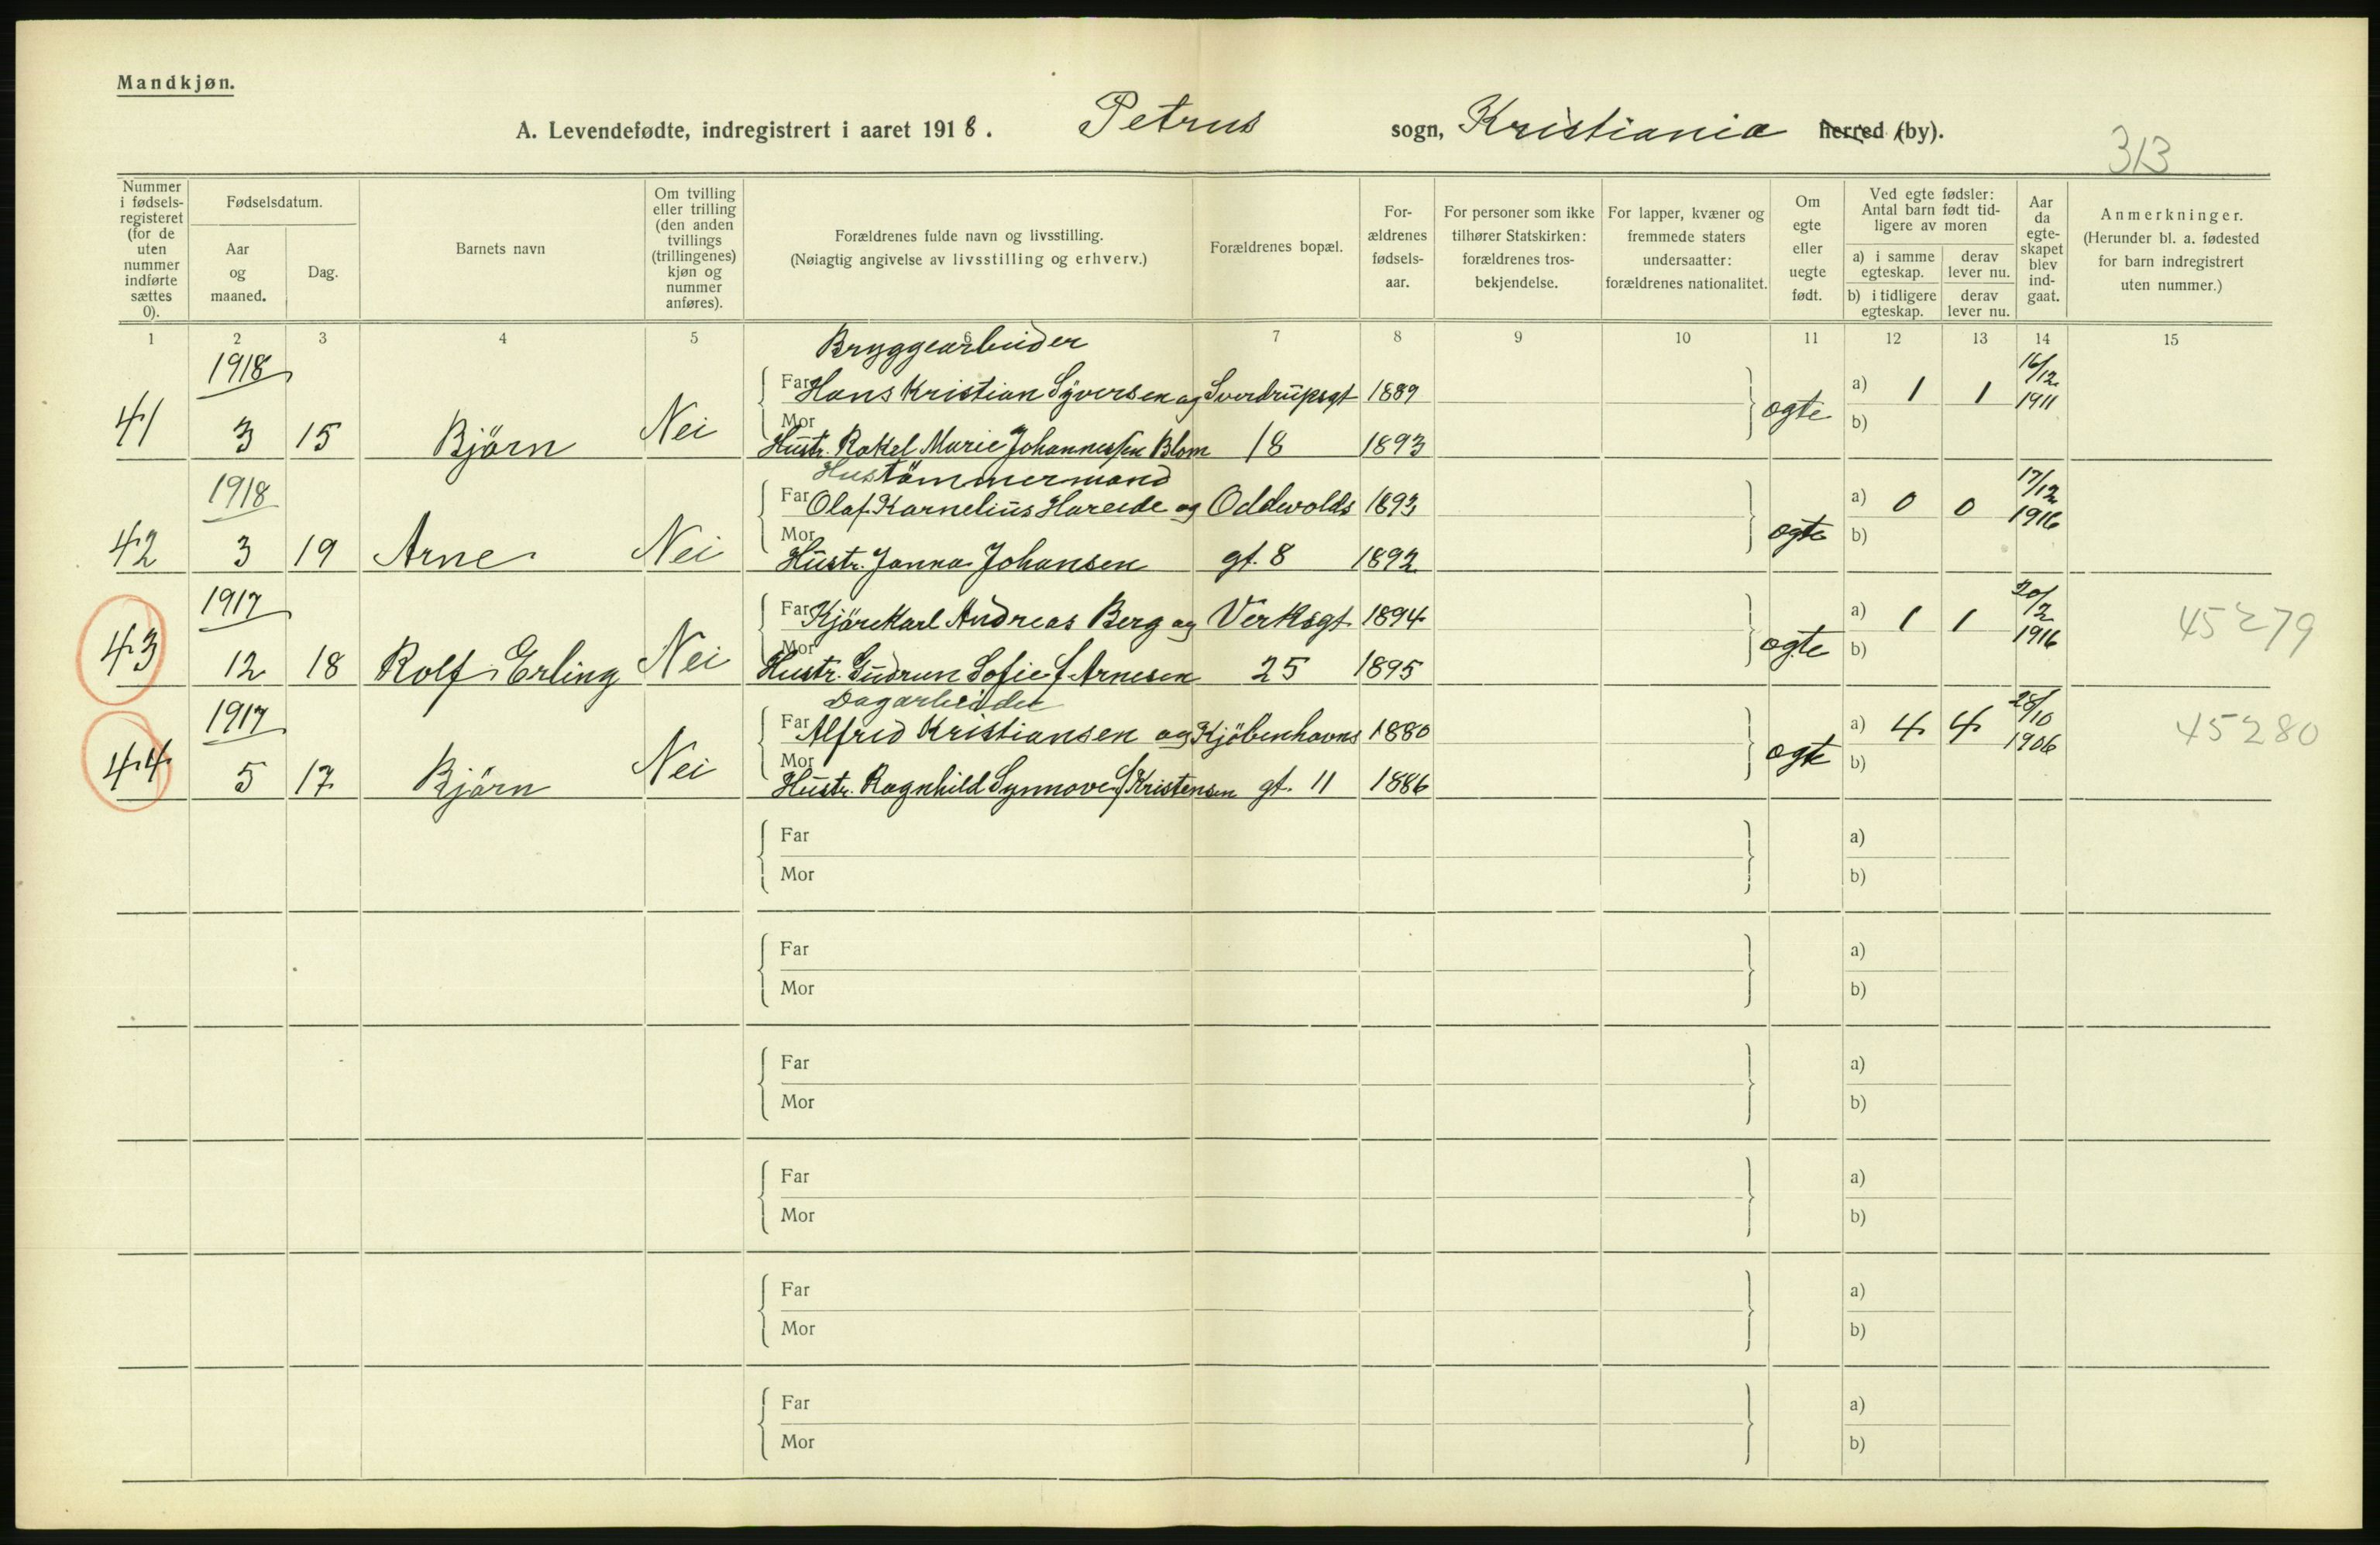 Mandkjøn.
A. Levendefødte, indregistrert i aaret 1918. Petrus sogn, Kristiania herred (by).
313
Nummer i fødsels-registeret (for de uten nummer indførte sættes 0).
Fødselsdatum.
Aar og maaned.
Dag.
Barnets navn
Om tvilling eller trilling (den anden tvillings (trillingenes) kjøn og nummer anføres).
Forældrenes fulde navn og livsstilling.
(Nøiagtig angivelse av livsstilling og erhverv.)
Forældrenes bopæl.
For-ældrenes fødsels-aar.
For personer som ikke tilhører Statskirken: forældrenes tros-bekjendelse.
For lapper, kvæner og fremmede staters undersaatter: forældrenes nationalitet.
Om egte eller uegte født.
Ved egte fødsler: Antal barn født tid-ligere av moren
a) i samme egteskap. derav lever nu.
b) i tidligere egteskap. derav lever nu.
Aar da egte-skapet blev ind-gaat.
Anmerkninger.
(Herunder bl. a. fødested for barn indregistrert uten nummer.)
1 2 3 4 5 6 7 8 9 10 11 12 13 14 15
1918 Bryggearbeider 16/12
Far Hans Kristian Syversen og Sverdrupsgt 1889 a) 1 1 1911
41 3 15 Björn Nei Mor Hustr. Rakel Marie Johannessen Blom 18 1893 egte b)
1918 Hustömmermand 17/12
Far Olaf Karnelius Hareide og Oddvolds 1893 a) 0 0 1916
42 3 19 Arne Nei Mor Hustr. Janna Johansen gt. 8 1892 egte b)
1917 20/2
Far Kjörekarl Andreas Berg og Verksgt 1894 a) 1 1 1916 45279
43 12 18 Rolf Erling Nei Mor Hustr. Gudrun Sofie f. Arnesen 25 1895 egte b)
1917 Dagarbeider 28/10
Far Alfred Kristiansen og Kjöbenhavns 1880 a) 4 4 1906 45280
44 5 17 Björn Nei Mor Hustr. Ragnhild Synnove f. Kristensen gt. 11 1886 egte b)
Far a)
Mor b)
Far a)
Mor b)
Far a)
Mor b)
Far a)
Mor b)
Far a)
Mor b)
Far a)
Mor b)